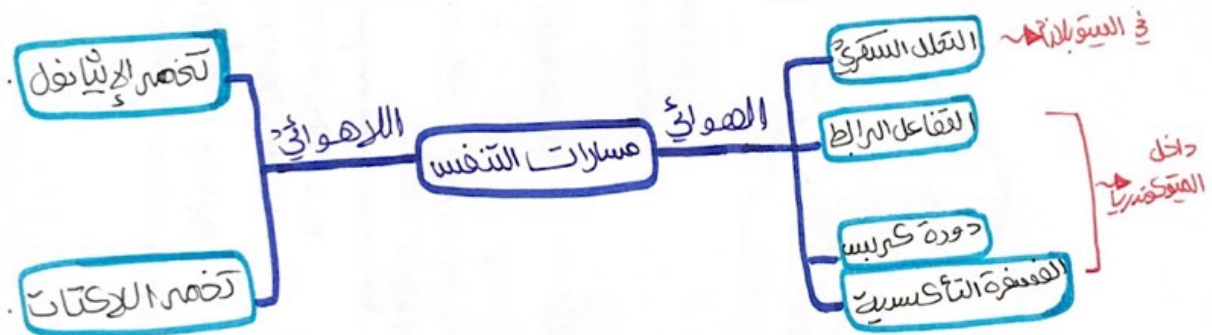 مسارات التنفس
الهوائي
التحلل السكري
في السيتوبلازم
التفاعل الرابط
دورة كربس
الفسفرة التأكسدية
داخل
الميتوكندريا
اللاهوائي
تخمر الإيثانول
تخمر اللاكتات